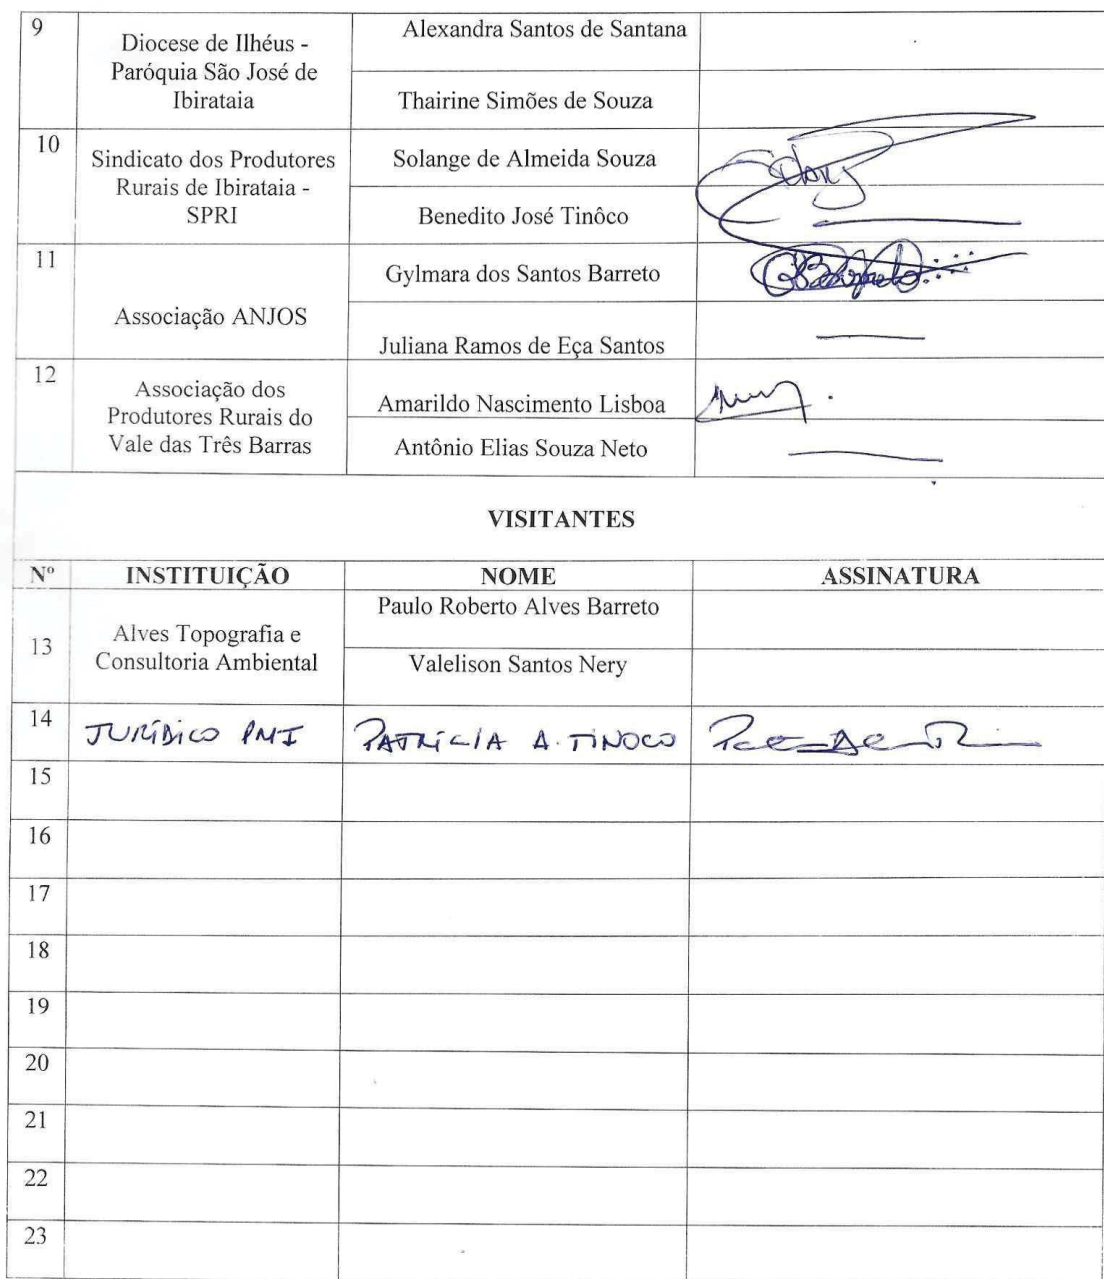 9
Diocese de Ilhéus -
Paróquia São José de
Ibirataia
Alexandra Santos de Santana
Thairine Simões de Souza
10
Sindicato dos Produtores
Rurais de Ibirataia -
SPRI
Solange de Almeida Souza
Benedito José Tinôco
11
Associação ANJOS
Gylmara dos Santos Barreto
Juliana Ramos de Eça Santos
12
Associação dos
Produtores Rurais do
Vale das Três Barras
Amarildo Nascimento Lisboa
Antônio Elias Souza Neto
VISITANTES
Nº INSTITUIÇÃO NOME ASSINATURA
13
Alves Topografia e
Consultoria Ambiental
Paulo Roberto Alves Barreto
Valelison Santos Nery
14 JURÍDICO PMI PATRÍCIA A. TINOCO
15
16
17
18
19
20
21
22
23